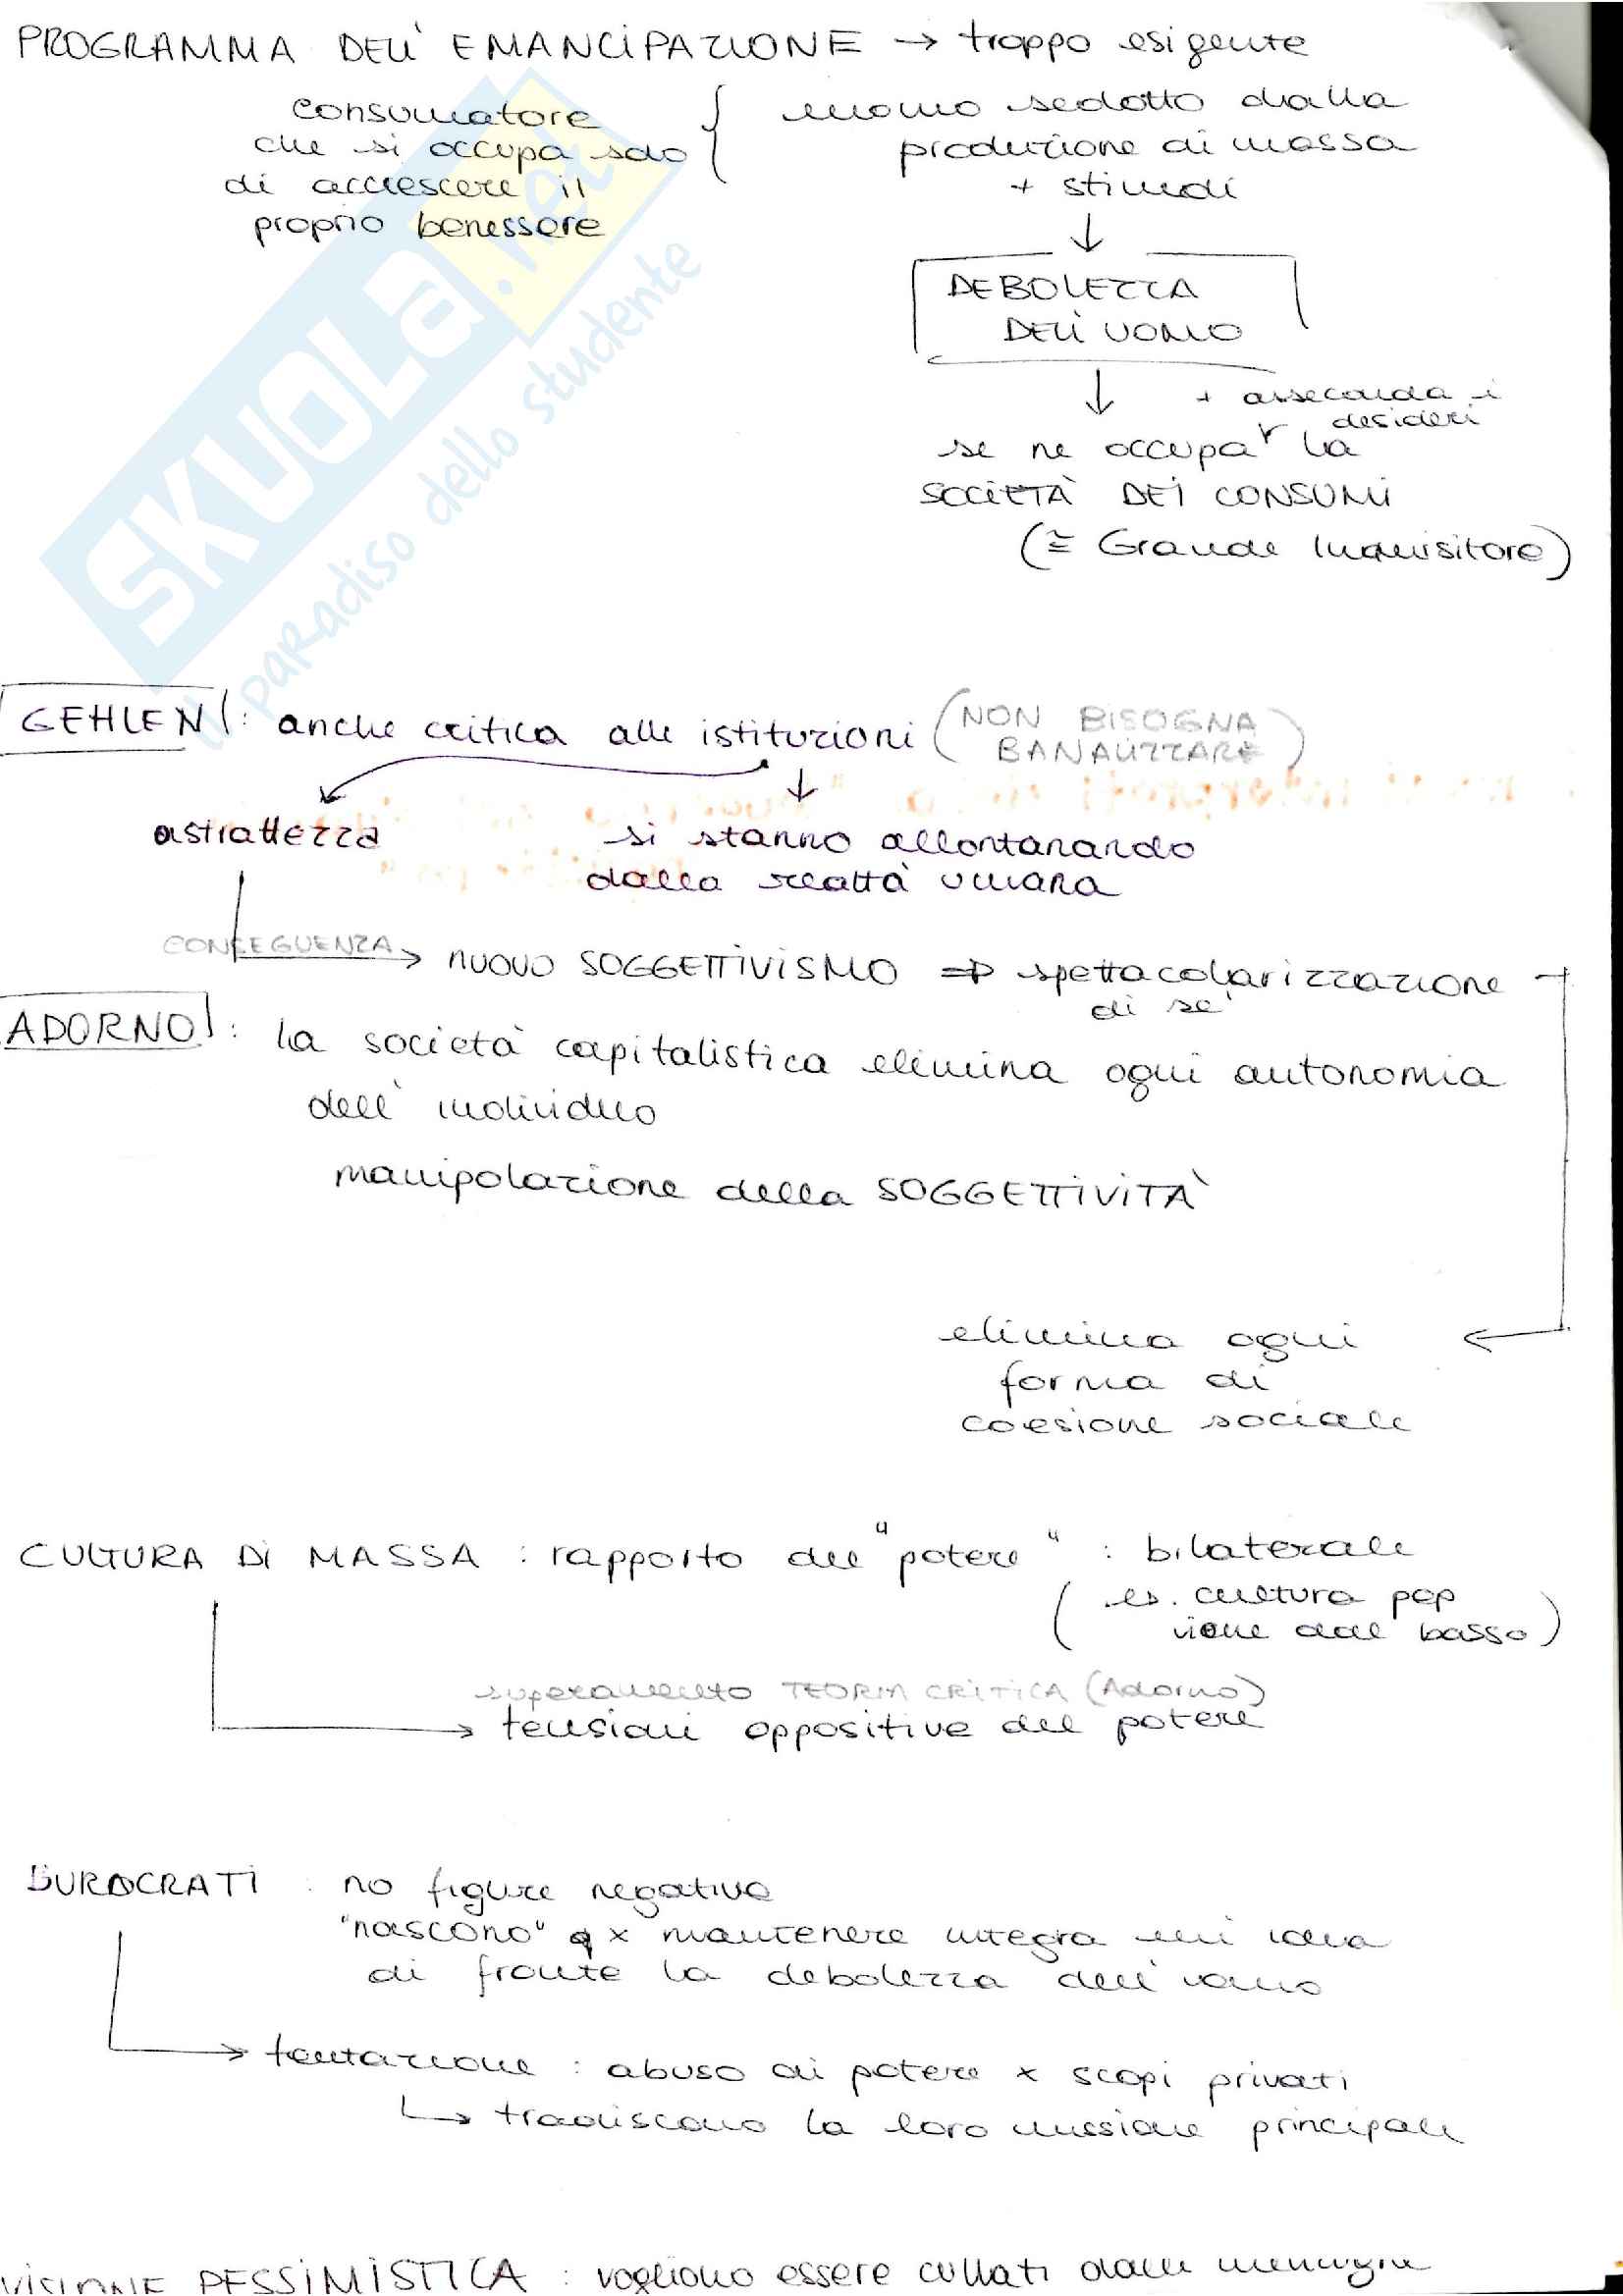 PROGRAMMA DELL' EMANCIPAZIONE → troppo esigente
consumatore
che si occupa solo
di accrescere il
proprio benessere
uomo sedotto dalla
produzione di massa
+ stimoli
↓
DEBOLEZZA
DELL'UOMO
↓ + asseconda i
desideri
se ne occupa la
SOCIETÀ DEI CONSUMI
(≅ Grande Inquisitore)
SKUOLA.net
il paradiso dello studente
GEHLEN : anche critica alle istituzioni (NON BISOGNA
BANALIZZARE)
astrattezza
si stanno allontanando
dalla realtà umana
CONSEGUENZA → NUOVO SOGGETTIVISMO ⇒ spettacolarizzazione
di se'
ADORNO : la società capitalistica elimina ogni autonomia
dell' individuo
manipolazione della SOGGETTIVITÀ
elimina ogni ←
forma di
coesione sociale
CULTURA DI MASSA : rapporto del "potere" : bilaterale
(es. cultura pop
viene dal basso)
superamento TEORIA CRITICA (Adorno)
→ tensioni oppositive del potere
BUROCRATI : no figure negative
"nascono" x mantenere integra un'idea
di fronte la debolezza dell'uomo
→ tentazione : abuso di potere x scopi privati
↳ tradiscono la loro missione principale
VISIONE PESSIMISTICA : vogliono essere cullati dalle menzogne